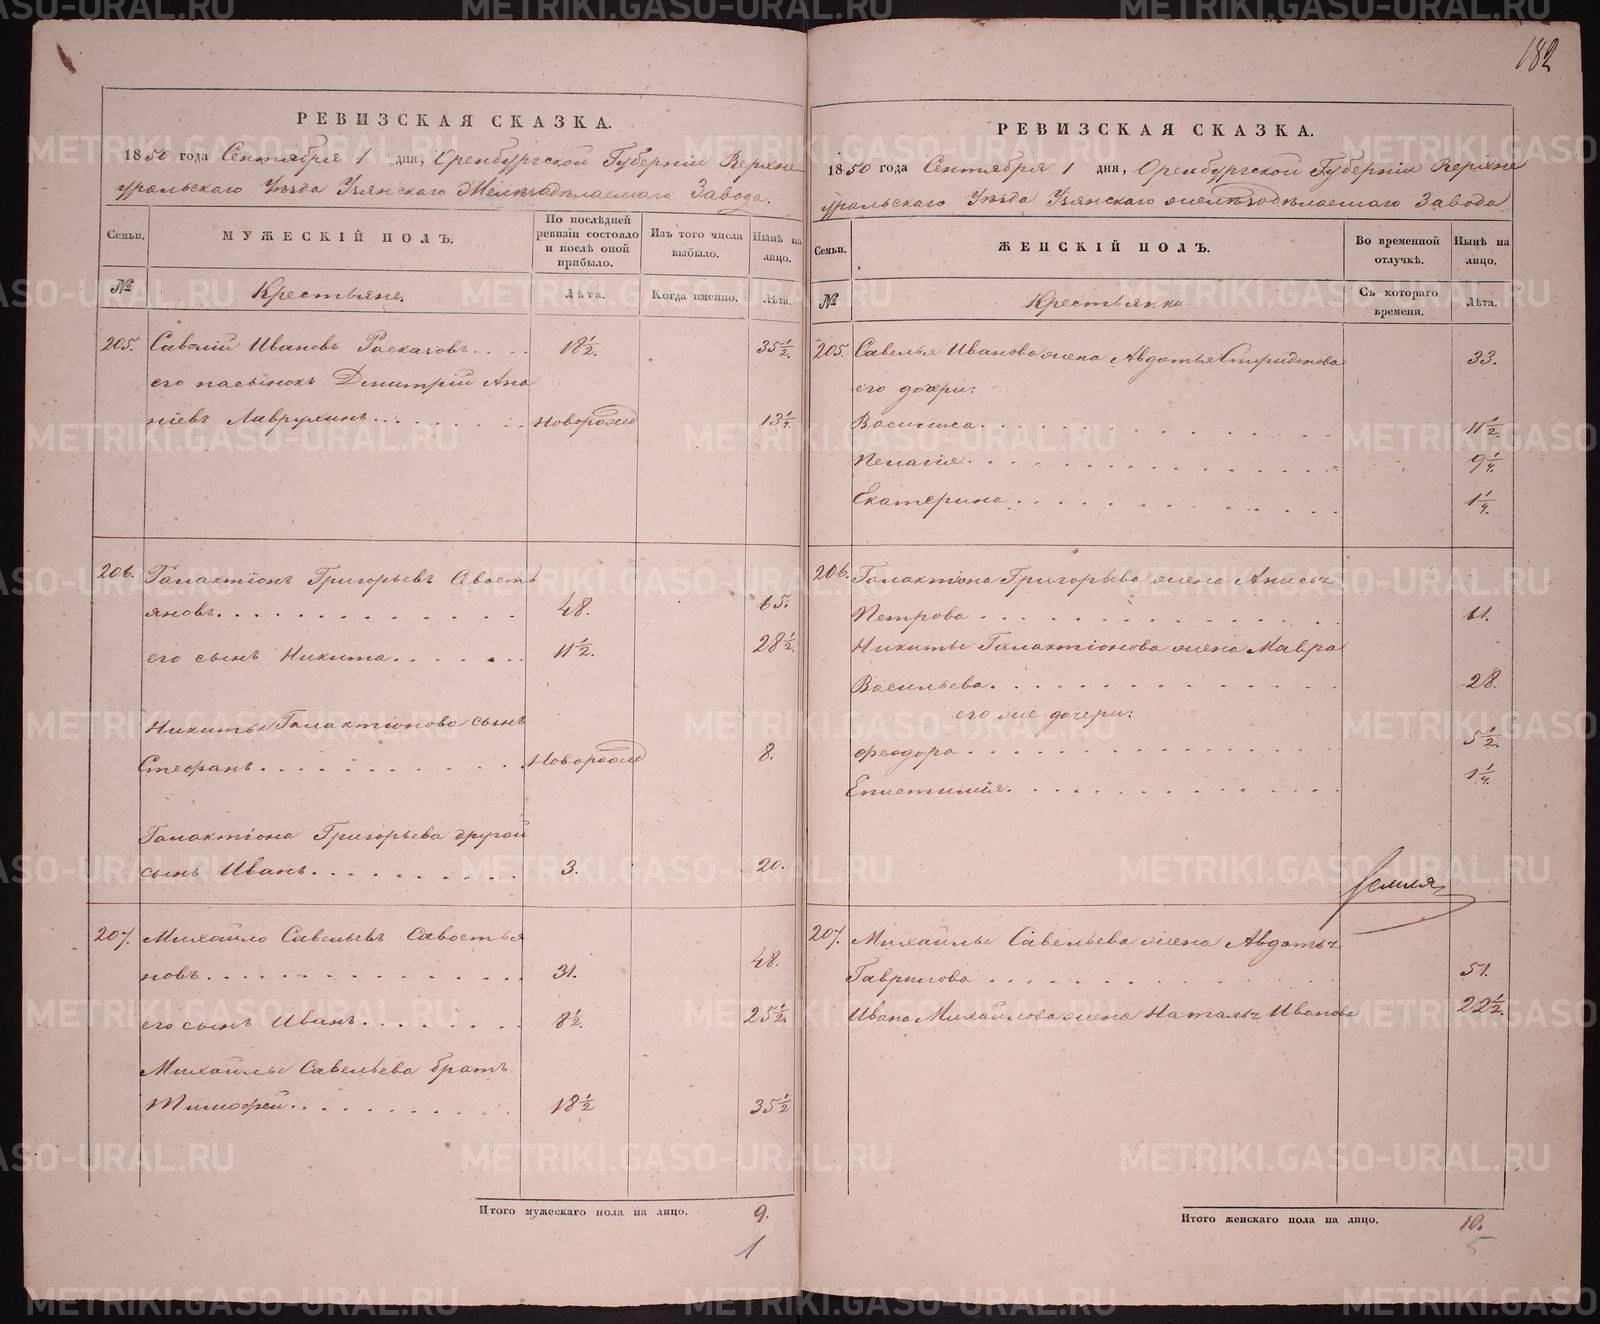 182
РЕВИЗСКАЯ СКАЗКА.
1850 года Сентября 1 дня, Оренбургской Губерніи Верхне
уральскаго Уѣзда Узянскаго Желѣзодѣлаемаго Завода.
Семьи.
МУЖЕСКІЙ ПОЛЪ.
По послѣдней ревизіи состояло и послѣ оной прибыло.
Изъ того числа выбыло.
Нынѣ на лицо.
№
Крестьяне.
Лѣта.
Когда именно.
Лѣта.
205. Савелій Ивановъ Расказовъ. . . . 18½. 35½.
его пасынокъ Дмитрій Ана
ніевъ Лаврухинъ. . . . . . . . новорожд 13¼.
206. Галактіонъ Григорьевъ Севасть
яновъ. . . . . . . . . . . . . . 48. 65.
его сынъ Никита. . . . . . . 11½. 28½.
Никиты Галактіонова сынъ
Стефанъ. . . . . . . . . . . . . Новорожд 8.
Галактіона Григорьева другой
сынъ Иванъ. . . . . . . . . . 3. 20.
207. Михайло Савельевъ Савостья
новъ. . . . . . . . . . . . . . . 31. 48.
его сынъ Иванъ. . . . . . . . 8½. 25½.
Михайлы Савельева братъ
Тимофей. . . . . . . . . . . 18½ 35½
Итого мужескаго пола на лицо. 9.
1
РЕВИЗСКАЯ СКАЗКА.
1850 года Сентября 1 дня, Оренбургской Губерніи Верхне
уральскаго Уѣзда Узянскаго желѣзодѣлаемаго Завода
Семьи.
ЖЕНСКІЙ ПОЛЪ.
Во временной отлучкѣ.
Нынѣ на лицо.
№
Крестьянки.
Съ котораго времени.
Лѣта.
205. Савелья Иванова жена Авдотья Спиридонова 33.
его дочери:
Василиса. . . . . . . . . . . . . 11½.
Пелагія. . . . . . . . . . . . . . 9¼.
Екатерина. . . . . . . . . . . . 1¼.
206. Галактіона Григорьева жена Анисья
Петрова . . . . . . . . . . . . . 61.
Никиты Галактіонова жена Мавра
Васильева. . . . . . . . . . . . . 28.
его же дочери:
Феодора. . . . . . . . . . . . . . 5½.
Епистимія. . . . . . . . . . . . . 1¼.
207. Михайлы Савельева жена Авдотья
Гаврилова . . . . . . . . . . . . 51.
Ивана Михайлова жена Наталья Иванова 22½.
Итого женскаго пола на лицо. 10.
5
METRIKI.GASO-URAL.RU